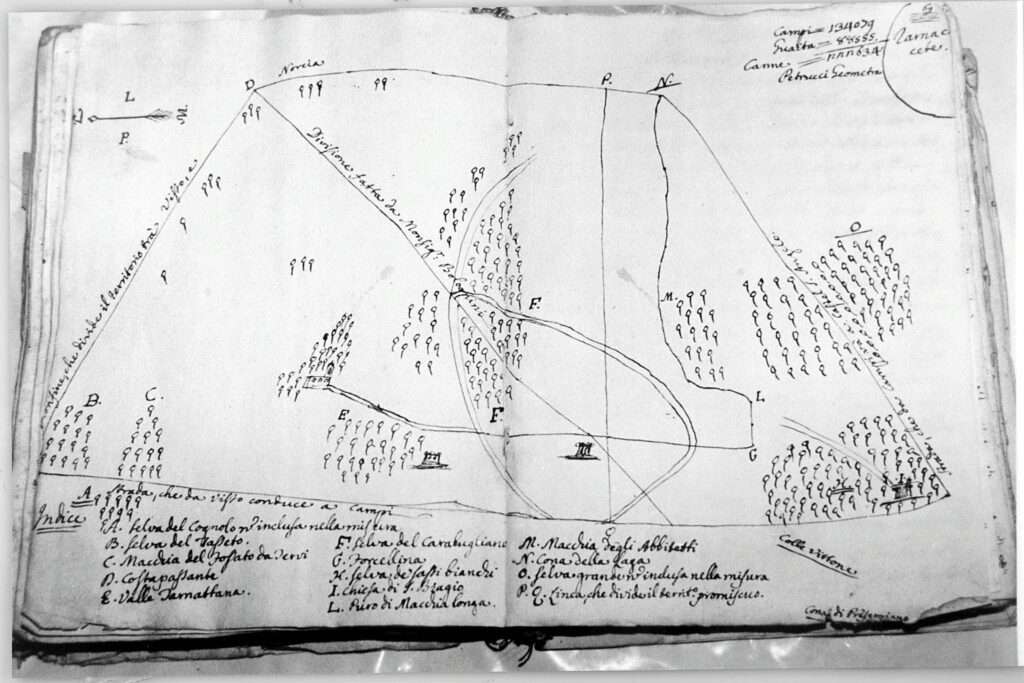 Campi = 134079
Guaita = 88555
Canne = nnn634
Petrucci Geometra
Norcia
D
P.
N.
L
P.
Confine, che divide il territorio trà Visso, e
Divisione fatta da Monsig.r
F.
M.
O
L
G
B.
C.
E.
F
H
I
A
Q
Strada, che da Visso conduce a Campi
Colle vittone
Cona di
Indice
A. Selva del Cognolo n. inclusa nella misura
B. Selva del Tasseto.
C. Macchia del Fossato da Iervi
D. Costapassante
E. Valla Tarnattana.
F. Selva del Carabugliano
G. Forcellina
H. Selva de' sassi bianchi
I. Chiesa di S. Biagio
L. Puro di Macchia longa.
M. Macchia degli Abbitatti
N. Cona della Faga
O. Selva grande n. inclusa nella misura
P. Q. Linea, che divide il territ.o promiscuo.